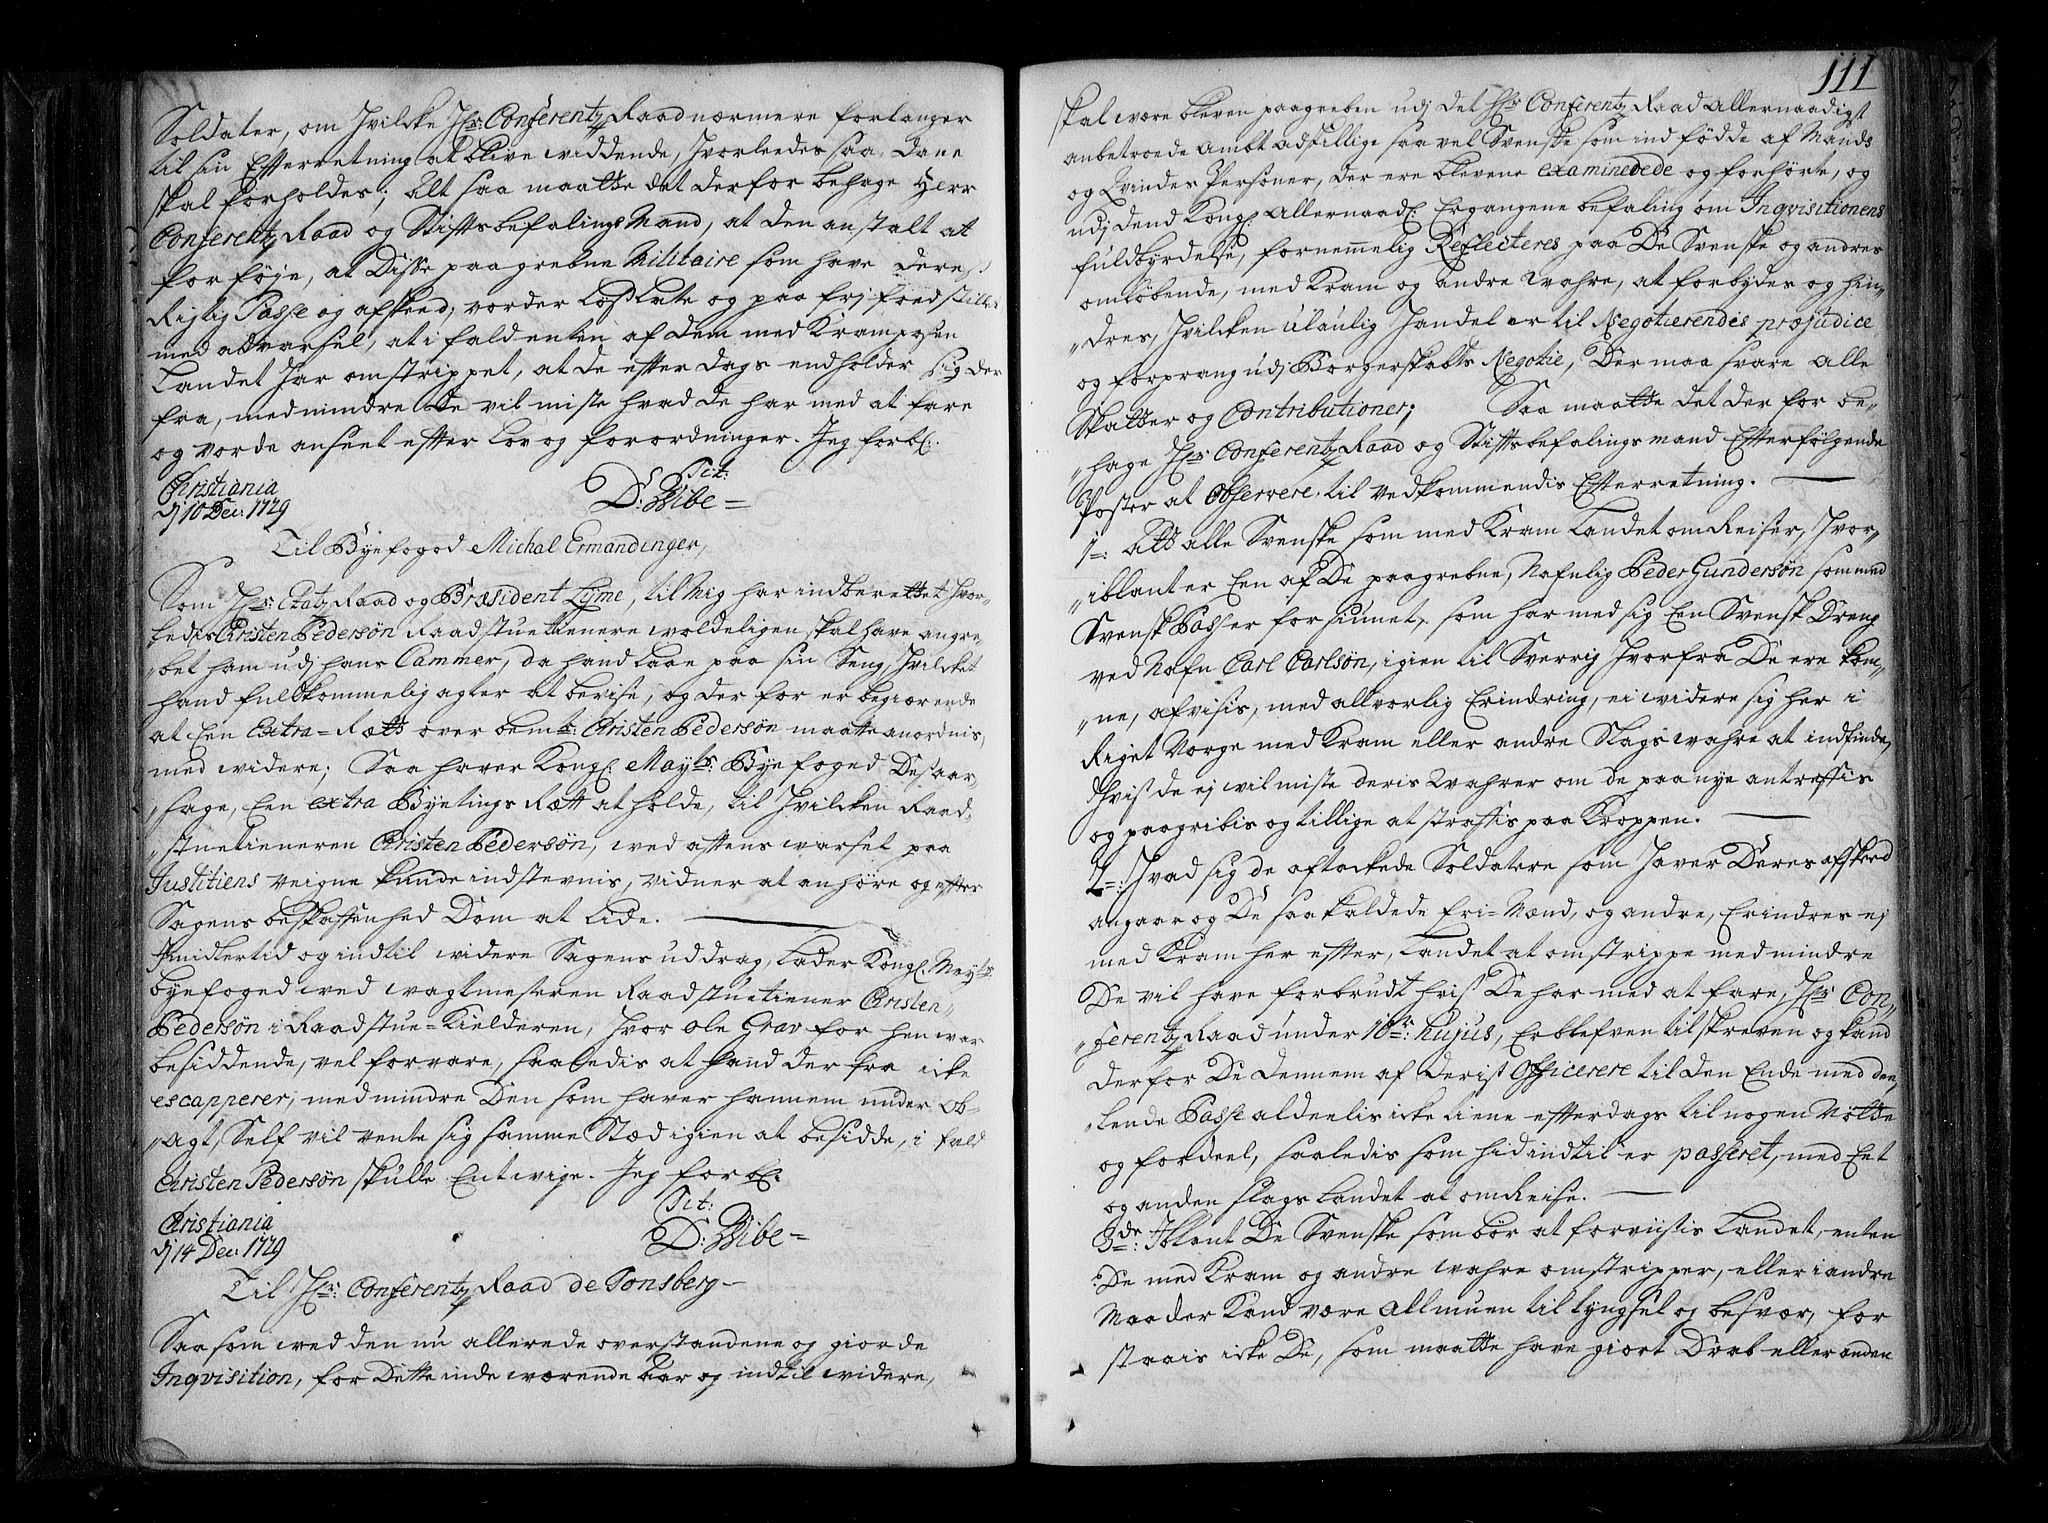 Soldater, om hvilcke Hr: Conferentz Raad nærmere forlanger
til sin Efterretning at blive widdende, hvorleedes saa, dane
skal forholdes; Alt saa maatte det derfor behage Herr
Conferentz Raad og Stiftsbefalings Mand, at den anstalt at
forføje, at Disse paagrebne Militaire som have deres
Rigtig Passe og afskeed, vorder Løslat og paa fri foed stillet
med advarsel, at i fald enten af dem med Kram
Landet har omstrippet, at de efter dags endholder sig der
fra, med mindre De vil miste hvad de har med at fare
og vorde anseet efter Lov og forordninger. Jeg forbl:
Christiania
dj 10 Dec: 1729
Tit:
D: Wibe =
Til Byefogod Michal Ermandinger,
Som Hr: Etatz Raad og Præsident Lyme, til Mig har indberettet hvor-
ledis Christen Pedersøn Raadstuetienere woldeligen skal have angre,
„bet ham udj hans Cammer, da hand laae paa sin Seng, hvilcket
hand fuldkommelig agter at bevise, og der for er begiærende
at Een Extra = Rætt over bemte: Christen Pedersøn maatte anordnis,
med widere; Saa haver Kongl: Mayts: Byefoged Desaar-
„sage, Een extra Byetings Rætt at holde, til hvilcken Raad-
„stuetieneren Christen Pedersøn, wed aftens warsel paa
Justitiens veigne kunde indstevnis, vidner at anhøre og efter
Sagens beskaffenhed Dom at lide.
Imidlertid og indtil widere Sagens uddrag, Lader Kongl: Mayts:
byefoged wed wagtmesteren Raadstuetiener Christen
Pedersøn i Raadstue = Kielderen, hvor Ole Grav for hen war
besiddende, vel forvare, saaledis at hand der fra icke
escapperer, med mindre Den som haver hannem under ob-
„agt, Self vil vente sig samme Stæd igien at besidde, i fald
Christen Pedersøn skulle Entwige. Jeg forbl:
Christiania
dj 14 Dec: 1729
Tit:
D: Wibe =
Til Hr: Conferentz Raad de Tonsberg –
Saa som wed den nu allerede overstandene og giorde
Inqvisition, for Dette inde wærende Aar og indtil widere,
111
skal være bleven paagreben udj det Hr: Conferentz Raad Allernaadigt
anbetroede Ambt adskillige saa vel Svenske som ind fødde af Mands
og Qvindes Personer, der ere blevene examinedede og forhørte, og
udj dend Kongl: Allernaadl: Ergangene befaling om Inqvisitionens
fuldbyrdelse, fornemmelig Reflecteres paa De Svenske og andres
omløbende, med Kram og andre wahre, at forbydes og hin-
„dres, hvilcken ulaulig handel er til Negotierendes præjudice
og forprang udj Borgerskabts Negotie, Der maa svare alle
Skatter og Contributioner; Saa maatte det der for be-
„hage Hr: Conferentz Raad og Stiftsbefalings mand Efterfølgende
Poster at Observere til vedkommendis Efterretning.
1=: Att alle Svenske som med Kram Landet omreiser, hvor-
„iblant er Een af De paagrebne, Nafnlig Peder Gundersøn som med
Svensk Pass er forsiunet, som har med sig Een Svensk Dreng
ved Nafn Carl Carlsøn, igien til Sverrig hvorfra De ere kom-
„ne, afvisis, med allvorlig Erindring, ei widere sig her i
Riget Norge med Kram eller andre Slags wahre at indfinde,
dhvis de ej wil miste deris Wahrer om de paa nye antreffis
og paagribis og tillige at straffis paa Kroppen.
2=: Hvad sig de aftackede Soldatere som haver Deres afskeed
angaar og De saa kaldede fri = Mænd, og andre, Erindres ej
med Kram her efter, Landet at omstrippe med mindre
De vil have forbrudt hvis De har med at fare, Hr: Con-
„ferentz Raad under 10de: hujus, Er blefven tilskreven og kand
derfor De dennem af deris Officerere til den Ende med dee
„lende Passe aldeelis icke tiene efterdags til nogen Nøtte
og fordeel, saaledis som hid indtil er passeret, med Eet
og anden slags Landet at omreise.
3de: Iblant De Svenske som bør at forviisis Landet, enten
De med Kram og andre wahre omstripper, eller i andre
Maader kand være Allmuen til tyngsel og besvær, for
staais icke De, som maatte have giort Drab eller anden